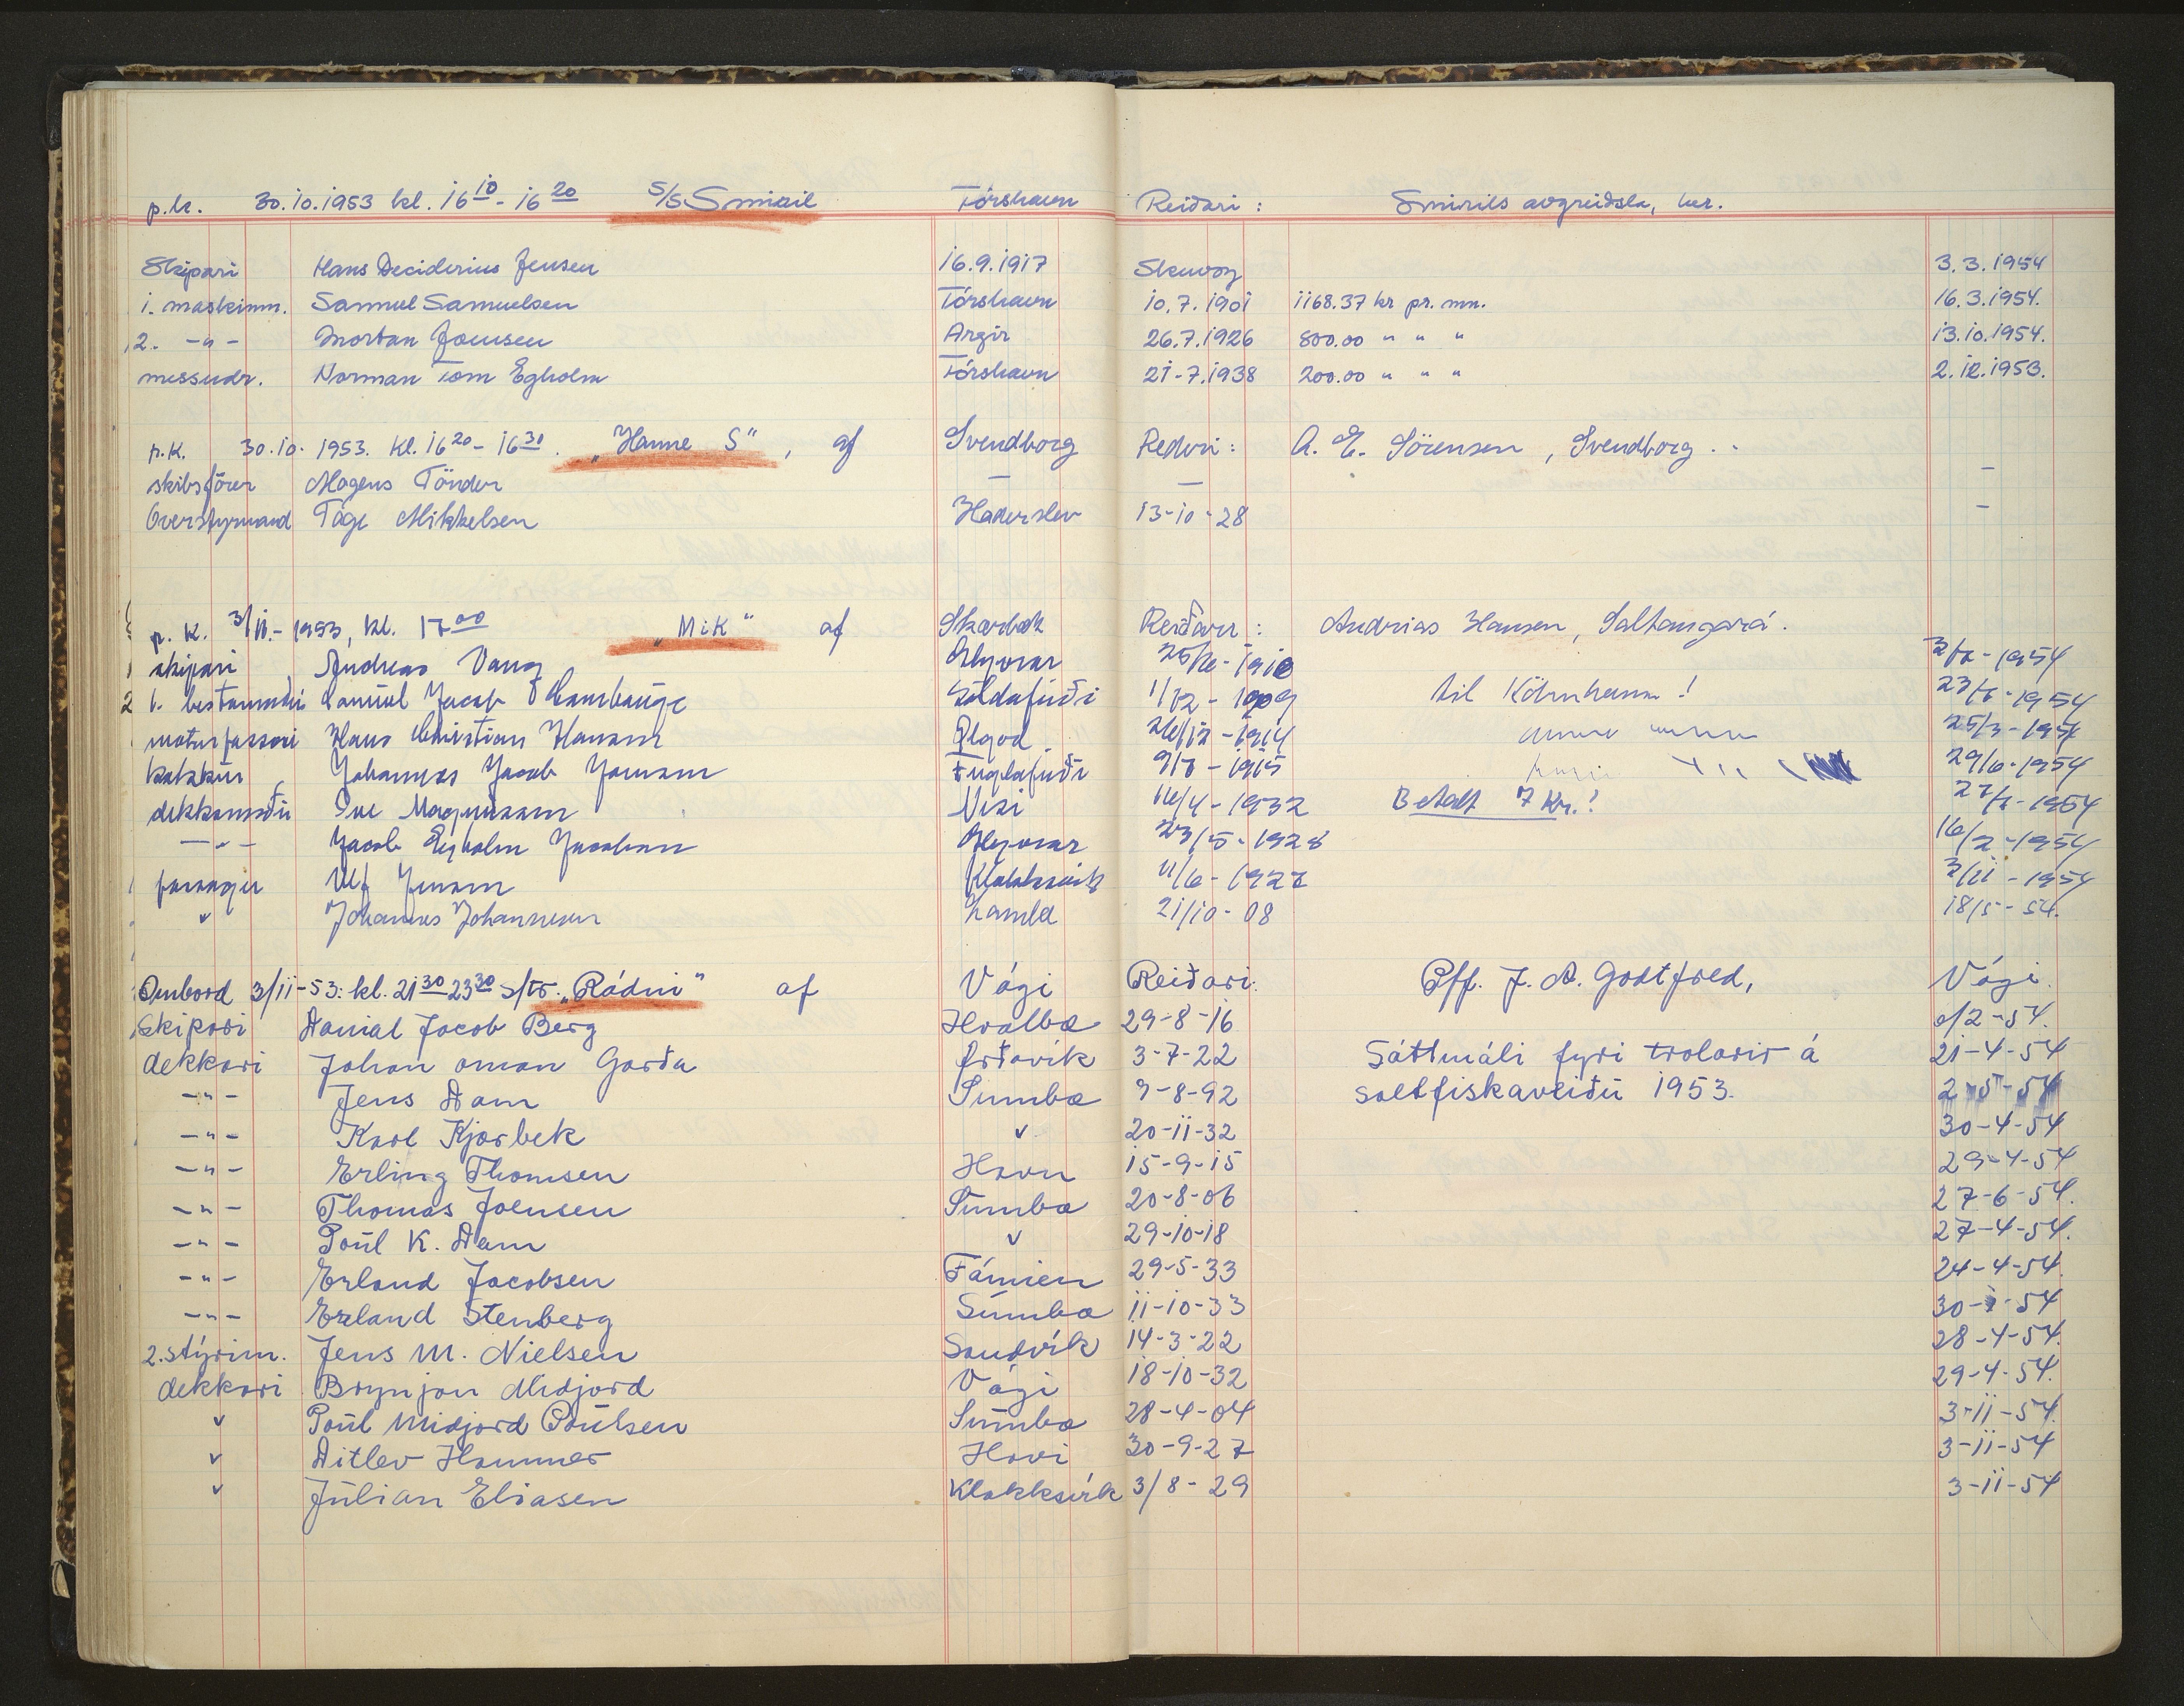 p.k. 30.10.1953 kl. 16 10 - 16 20 S/S Smiril Tórshavn Reiðari: Smirils avgreiðsla, her.
Skipari Hans Deciderius Jensen 16.9.1917 Skuvoy 3.3.1954
1. maskinm. Samuel Samuelsen Tórshavn 10.7.1901 1168.37 kr pr. mn. 16.3.1954.
2. -"- Morten Joensen Argir 26.7.1926 800.00 " " " 13.10.1954.
messudr. Norman Tom Egholm Tórshavn 21-7.1938 200.00 " " " 2.12.1953.
p.K. 30.10. 1953. Kl. 16 20 - 16 30. "Hanne S", af Svendborg Rederi: A. E. Sörensen, Svendborg.
skibsförer Mogens Tönder — — —
Overstyrmand Tage Mikkelsen Haderslev 13-10-28 —
p. K. 3/11.-1953, kl. 17 00 "MiK" af Reiðari: Andrias Hansen, Saltangará.
skipari Andreas Vang
1. bestamaður Samuel Jacob
Hans Christian Hansen til !
Johannes Jacob Joensen Fuglafirði 29/6-1954
dekksmaður Magnussen 16/4-1932 Betalt 7 Kr.!
-"- Jacob Egholm Jacobsen 23/5-1928 16/2-1954
Ulf Jensen Klakksvik 11/6-1927 3/11-1954
" Johannes Johannesen 21/10-08 18/5-54.
Ombord 3/11-53: kl. 21 30 - 23 30 S/tr. "Rádni" af Vági Reiðari: Pff. J. A. Godtfred, Vági.
Skipari Danial Jacob Berg Hvalba 29-8-16
dekkari Johan oman Garða Ørðavík 3-7-22 Sáttmáli fyri trolarir á 21-4-54
-"- Jens Dam Sumba 7-8-92 saltfiskaveiðu 1953. 2-5-54
-"- Karl Kjærbek " 20-11-32 30-4-54
-"- Erling Thomsen Havn 15-9-15 29-4-54
-"- Thomas Joensen Sumba 20-8-06 27-6-54.
-"- Poul K. Dam " 29-10-18 27-4-54.
-"- Erland Jacobsen Fámien 29-5-33 24-4-54.
-"- Erland Stenberg Sumba 11-10-33
2. stýrim. Jens M. Nielsen Sandvík 14-3-22 28-4-54.
dekkari Brynjon Midjord Vági 18-10-32 29-4-54.
" Poul Midjord Poulsen Sumba 28-4-04 3-11-54.
" Ditlev Hammer Hovi 30-9-27 3-11-54
" Julian Eliasen Klakksvík 3/8-29 3-11-54